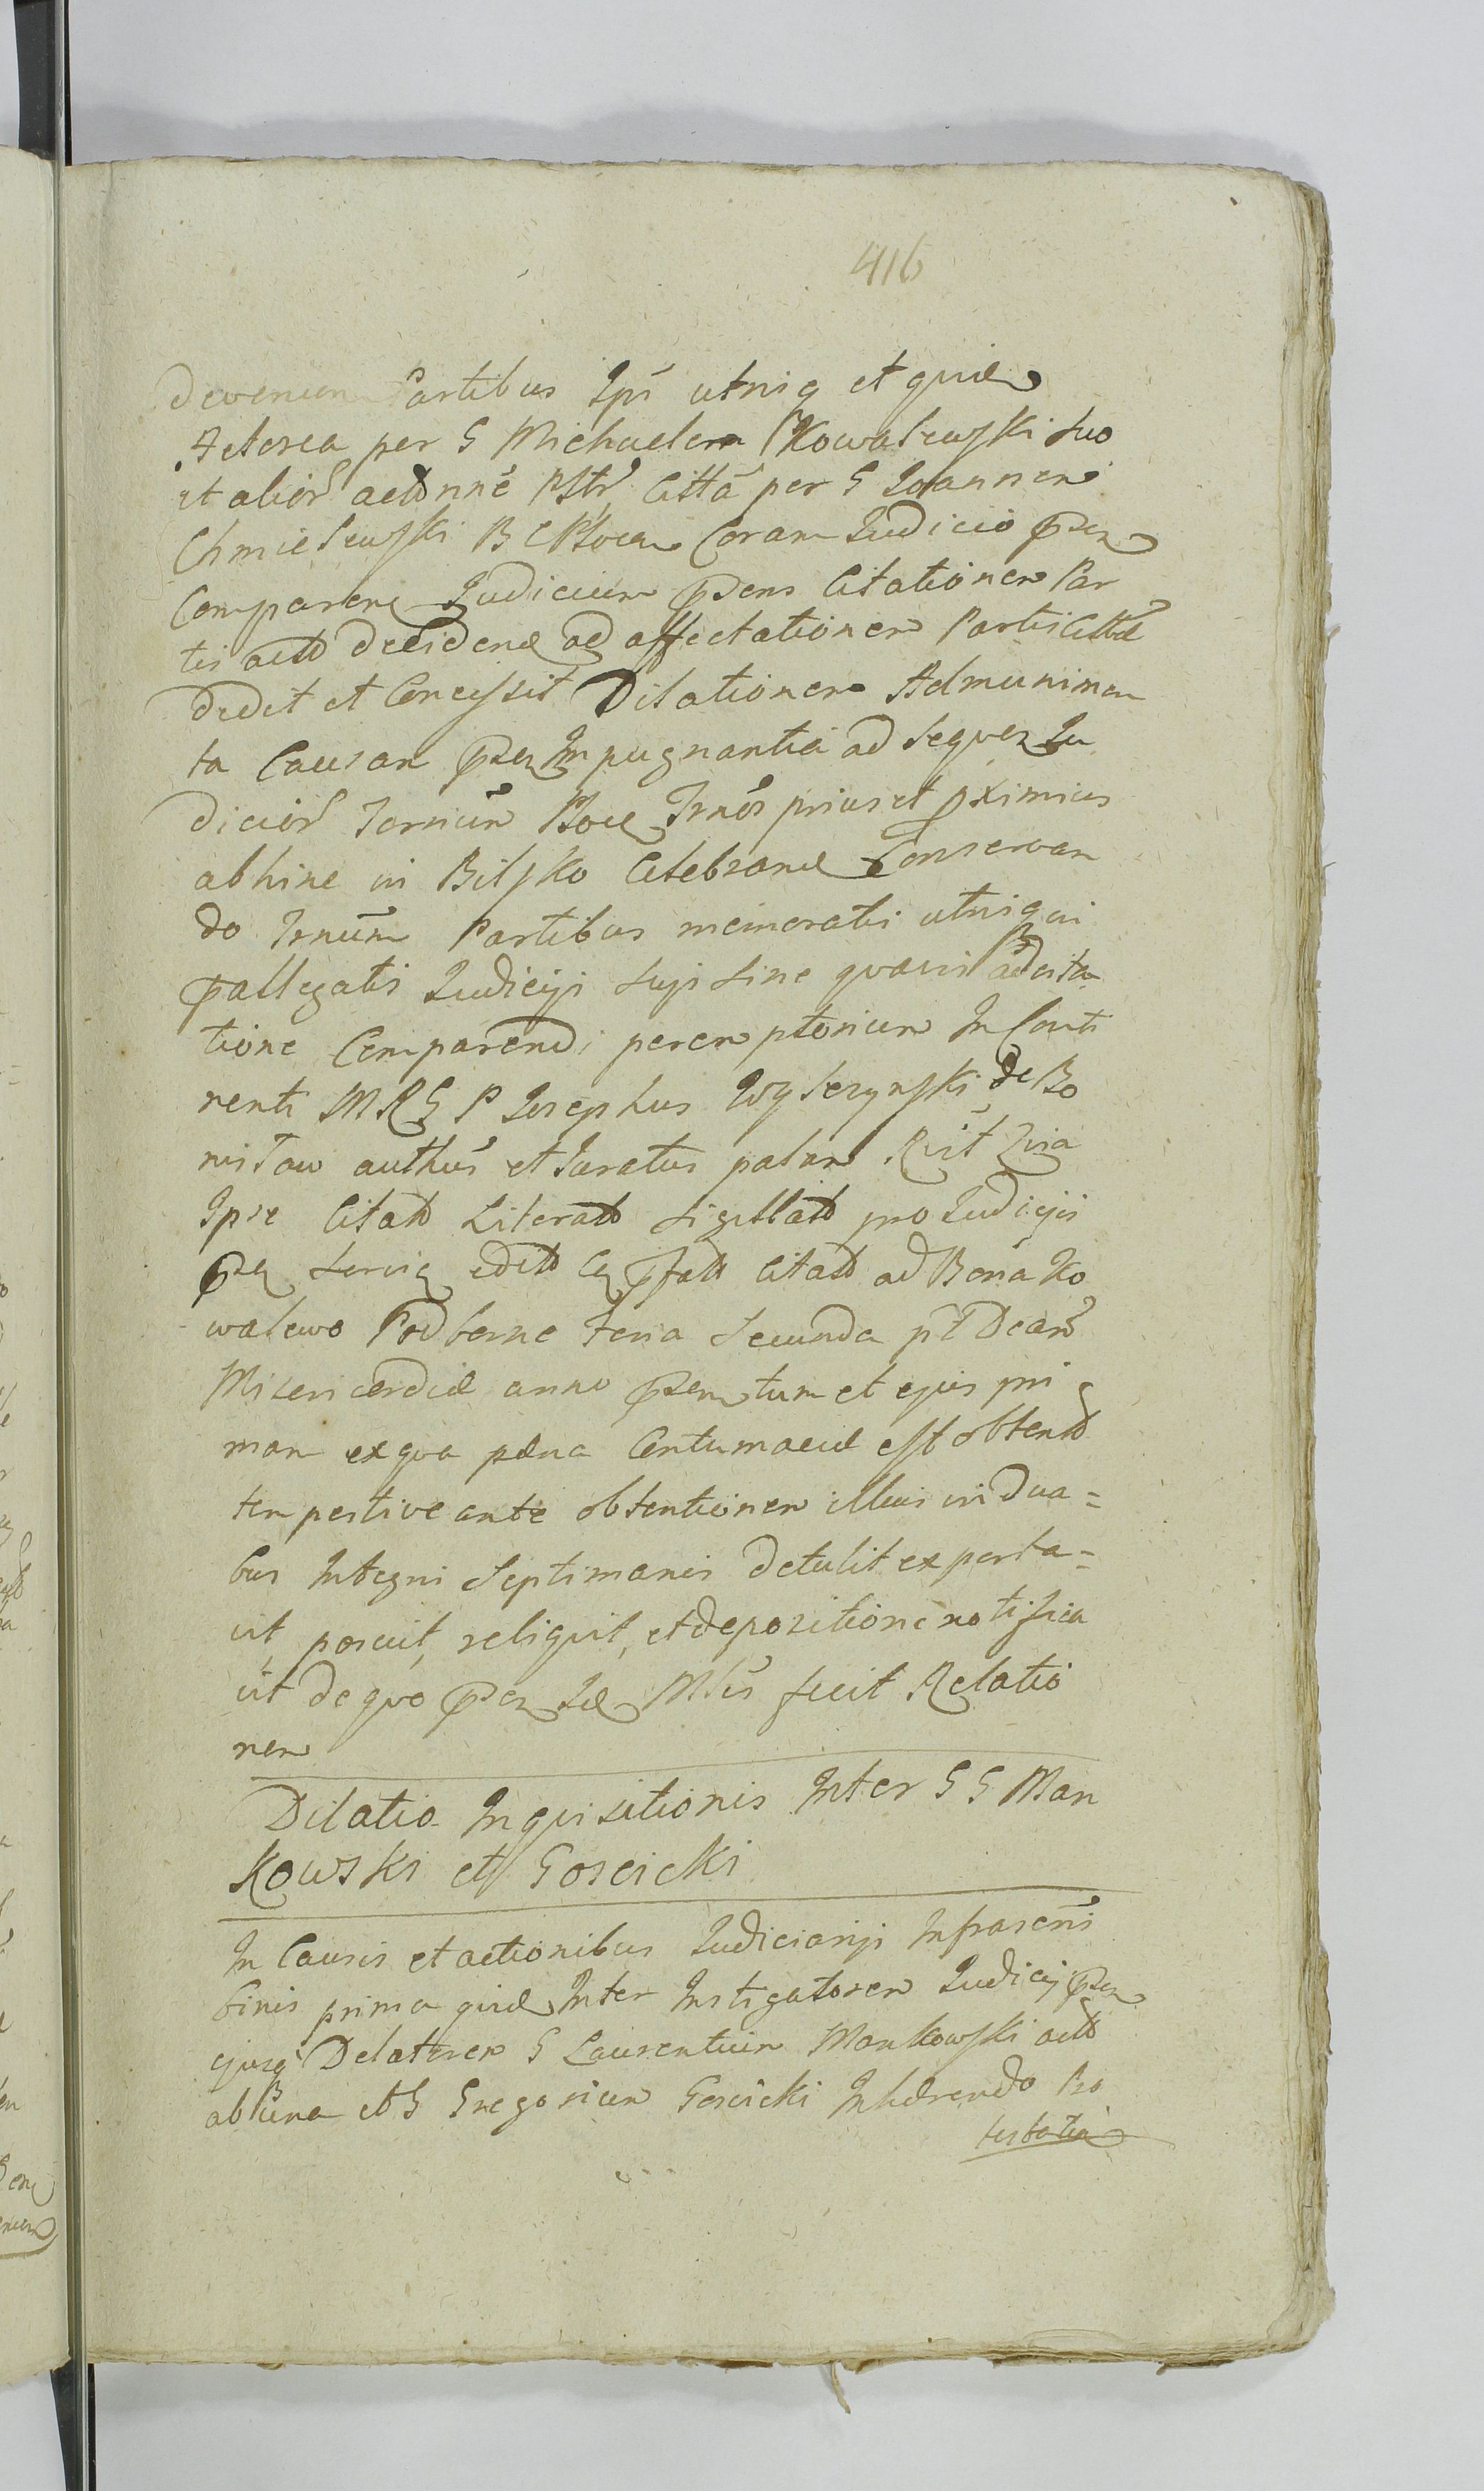 416
Partibus Ipi utriq et quid
Actorea per G Michaelem Kowalewski suo
et alior actor nne citta per G Joannem
Chmielewski B C Ploce Coram Judicio psen
Comparen Judicium psens Citationem Par
tis acto decidend ad affectationem Partis Citta
dedit et Concessit Dilationem Admunimen
ta Causam psen Impugnantia ad sequen Ju
dicior Terminu Ploce Trnos prius et pximius
abhinc in Bilsko Celebrand Conservan
do Trnum Partibus memoratis utrisq in
pallegatis Judicijs sujs sine quavis adcita
tione Comparendi peremptorium In Conti
nenti M R G P Josephus Wyleżynski de Bo
nislaw authus et Juratus palam Rvit Quia
Ipse Citato Literato sigillato pro Judicijs
psen servien edito Cq pfato Citato ad Bona Ko
walewo Podborne feria secunda pt Dcam
Misericordiæ anno psen tum et ejus pri
mam ex qva pæna Contumaciæ est obtento
tempestive ante obtentionem illius in dua=
bus Integris Septimanis detulit exporta=
vit, posuit, reliqvit, et depositione notifica
vit de qvo psen Jud Mlis fecit Relatio
nem
Dilatio Inqvisitionis Inter G G Man
kowski et Goscicki
In Causis et actionibus Judiciarijs Infrascris
binis prima quid Inter Instigatorem Judicij psen
ejusq Delatorem G Laurentium Mankowski acto
ab una et G Gregorium Goscicki Inhærendo Pro
testatia